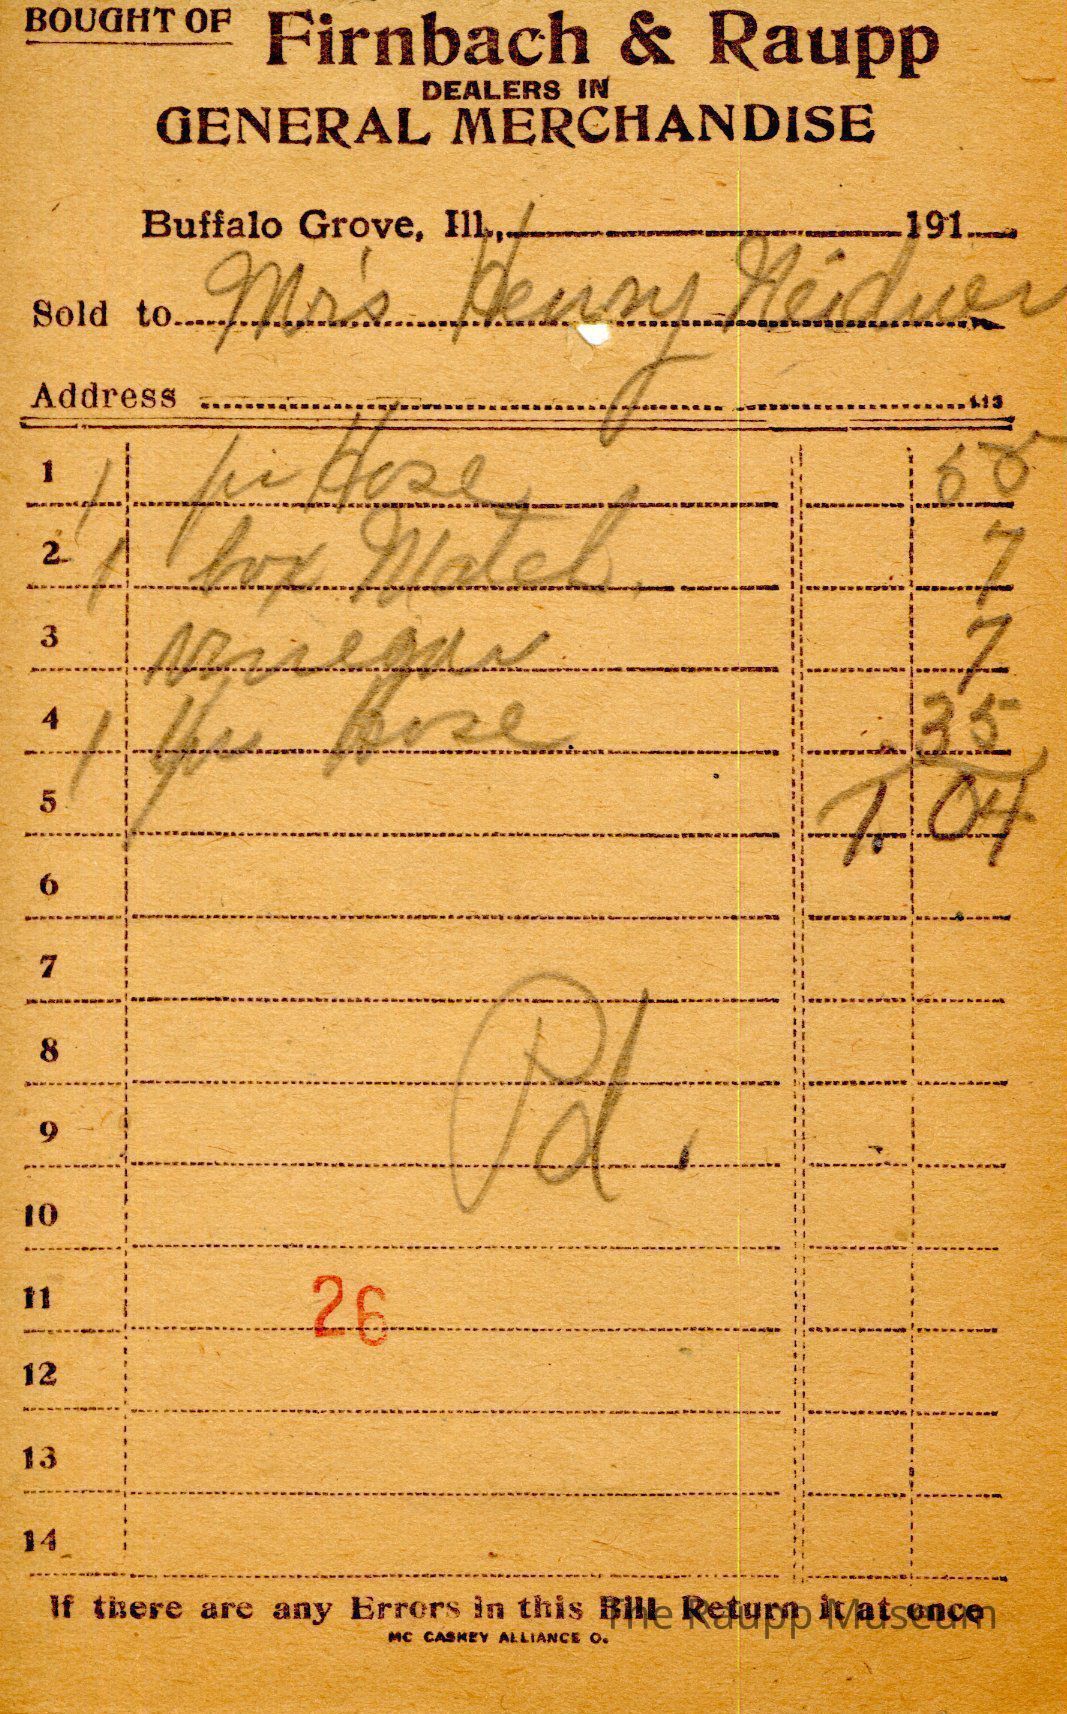 BOUGHT OF Firnbach & Raupp
DEALERS IN
GENERAL MERCHANDISE
Buffalo Grove, Ill., 191
Sold to Mrs Henry Weidner
Address
113
1 1 pr Hose 55
2 1 box Match. 7
3 vinegar 7
4 1 pr hose .35
5 1.04
6
7
8
Pd.
9
10
11 26
12
13
14
If there are any Errors in this Bill Return it at once
The Raupp Museum
MC CASKEY ALLIANCE O.